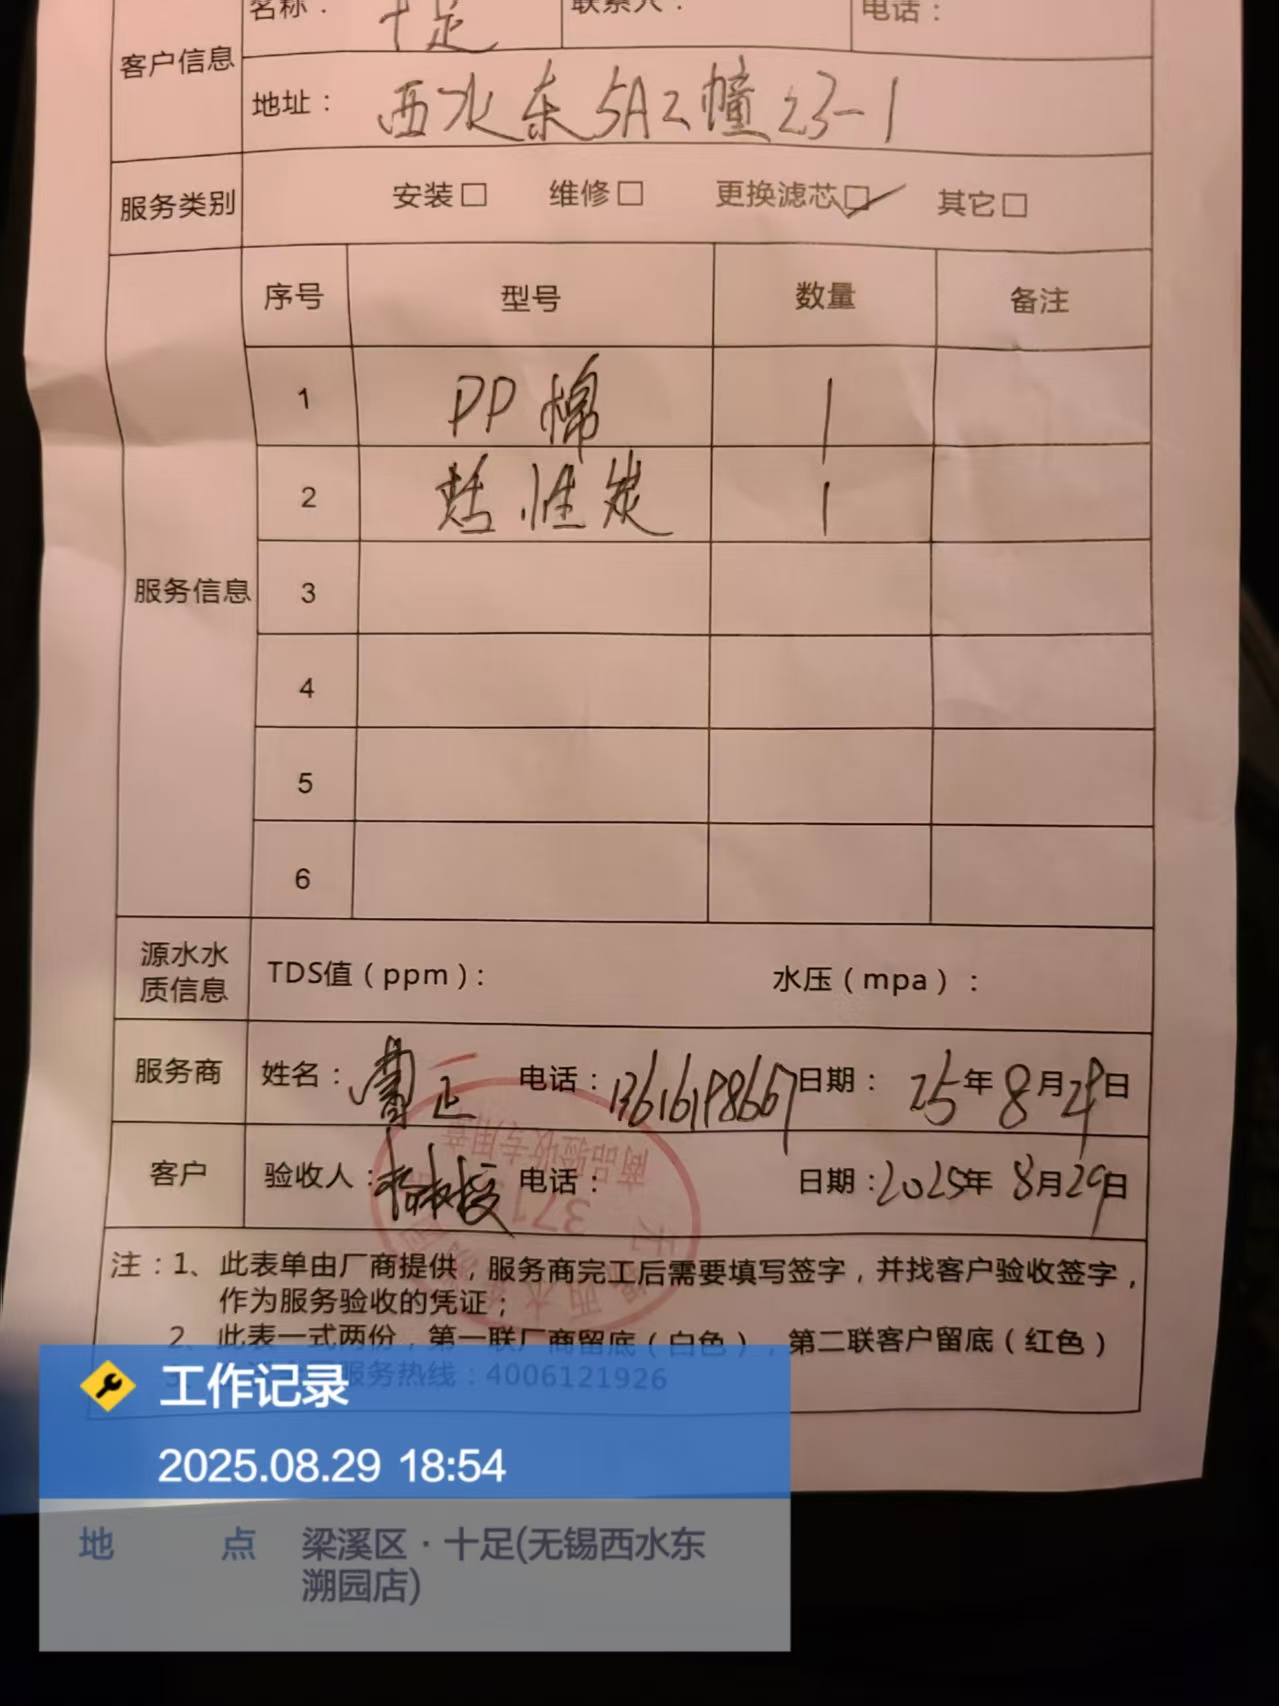 名称： 十足 联系人： 电话：
客户信息
地址： 西水东5A2幢23-1
服务类别 安装□ 维修□ 更换滤芯□✓ 其它□
序号 型号 数量 备注
1 PP棉 1
2 活性炭 1
服务信息 3
4
5
6
源水水质信息 TDS值（ppm）： 水压（mpa）：
服务商 姓名： 电话： 日期： 25年8月29日
客户 验收人： 电话： 日期：2025年8月29日
商品验收专用章
371
注：1、此表单由厂商提供，服务商完工后需要填写签字，并找客户验收签字，
作为服务验收的凭证；
2、此表一式两份，第一联厂商留底（白色），第二联客户留底（红色）
服务热线：4006121926
工作记录
2025.08.29 18:54
地 点 梁溪区·十足(无锡西水东
溯园店)